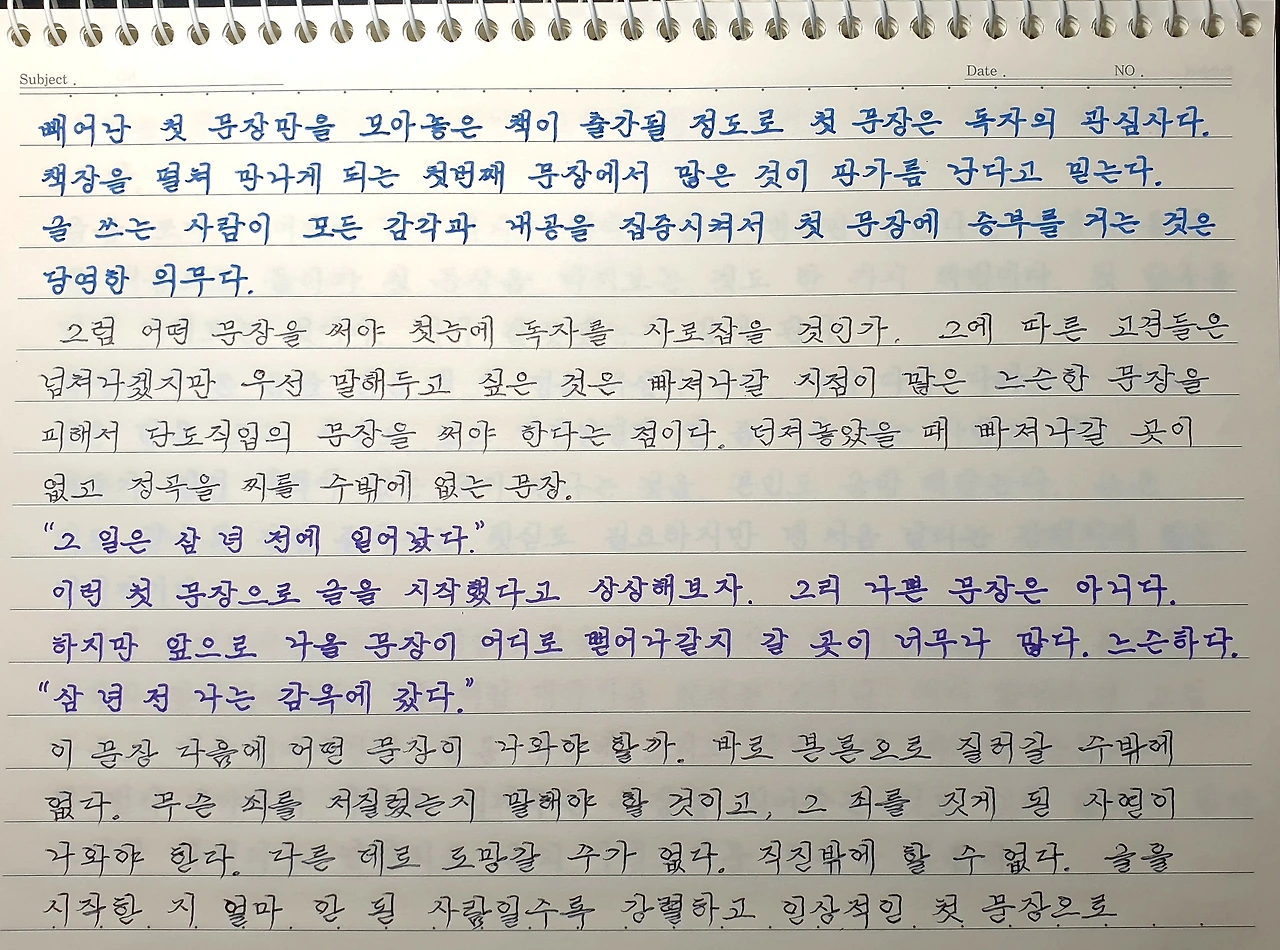 Subject .
Date .
NO .
빼어난 첫 문장만을 모아놓은 책이 출간될 정도로 첫 문장은 독자의 관심사다.
책장을 펼쳐 만나게 되는 첫번째 문장에서 많은 것이 판가름 난다고 믿는다.
글 쓰는 사람이 모든 감각과 내공을 집중시켜서 첫 문장에 승부를 거는 것은
당연한 의무다.
그럼 어떤 문장을 써야 첫눈에 독자를 사로잡을 것인가. 그에 따른 고견들은
넘쳐나겠지만 우선 말해두고 싶은 것은 빠져나갈 지점이 많은 느슨한 문장을
피해서 단도직입의 문장을 써야 한다는 점이다. 던져놓았을 때 빠져나갈 곳이
없고 정곡을 찌를 수밖에 없는 문장.
"그 일은 삼 년 전에 일어났다."
이런 첫 문장으로 글을 시작했다고 상상해보자. 그리 나쁜 문장은 아니다.
하지만 앞으로 나올 문장이 어디로 뻗어나갈지 갈 곳이 너무나 많다. 느슨하다.
"삼 년 전 나는 감옥에 갔다."
이 문장 다음에 어떤 문장이 나와야 할까. 바로 본론으로 질러갈 수밖에
없다. 무슨 죄를 저질렀는지 말해야 할 것이고, 그 죄를 짓게 된 사연이
나와야 한다. 다른 데로 도망갈 수가 없다. 직진밖에 할 수 없다. 글을
시작한 지 얼마 안 된 사람일수록 강렬하고 인상적인 첫 문장으로